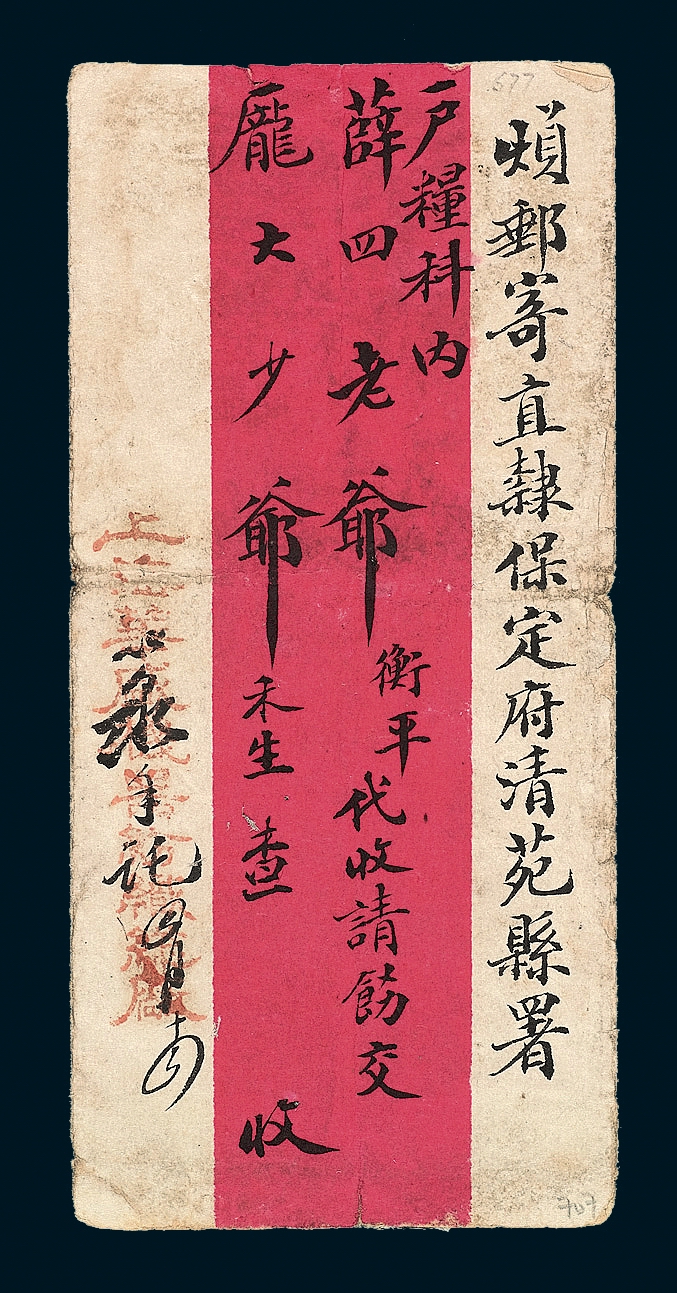 煩郵寄直隸保定府清苑縣署
戶糧科内
薛四老爺衡平代收請飭交
龐大少爺禾生查收
手託四月
677
707